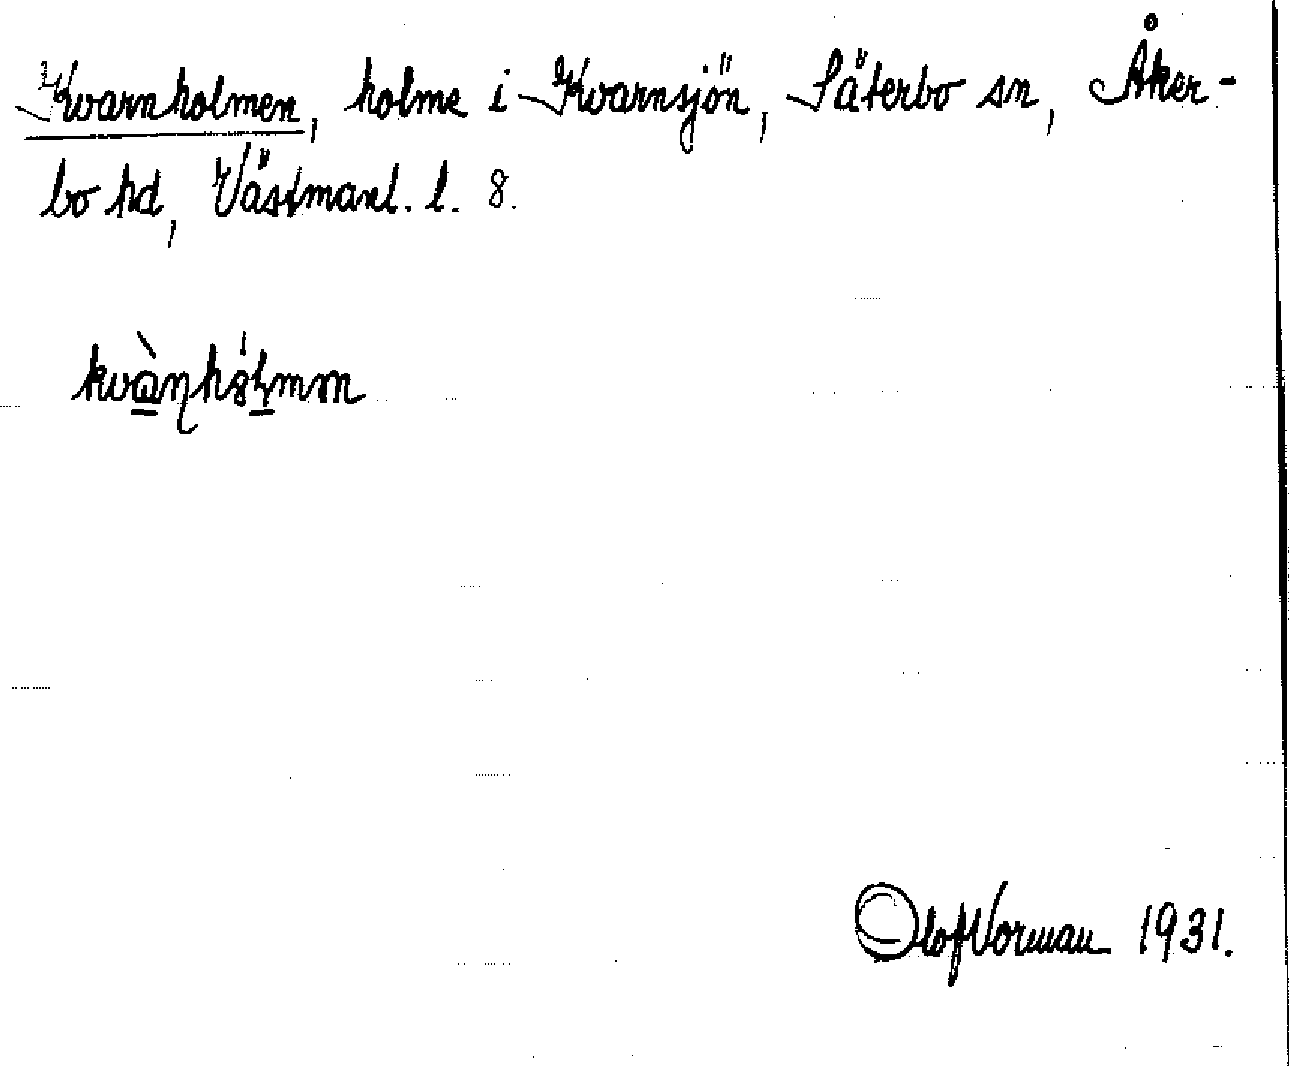 Kvarnholmen, holme i Kvarnsjön, Säterbo sn, Åker-
bo hd, Västmanl. l. 8.
Olof Norman 1931.